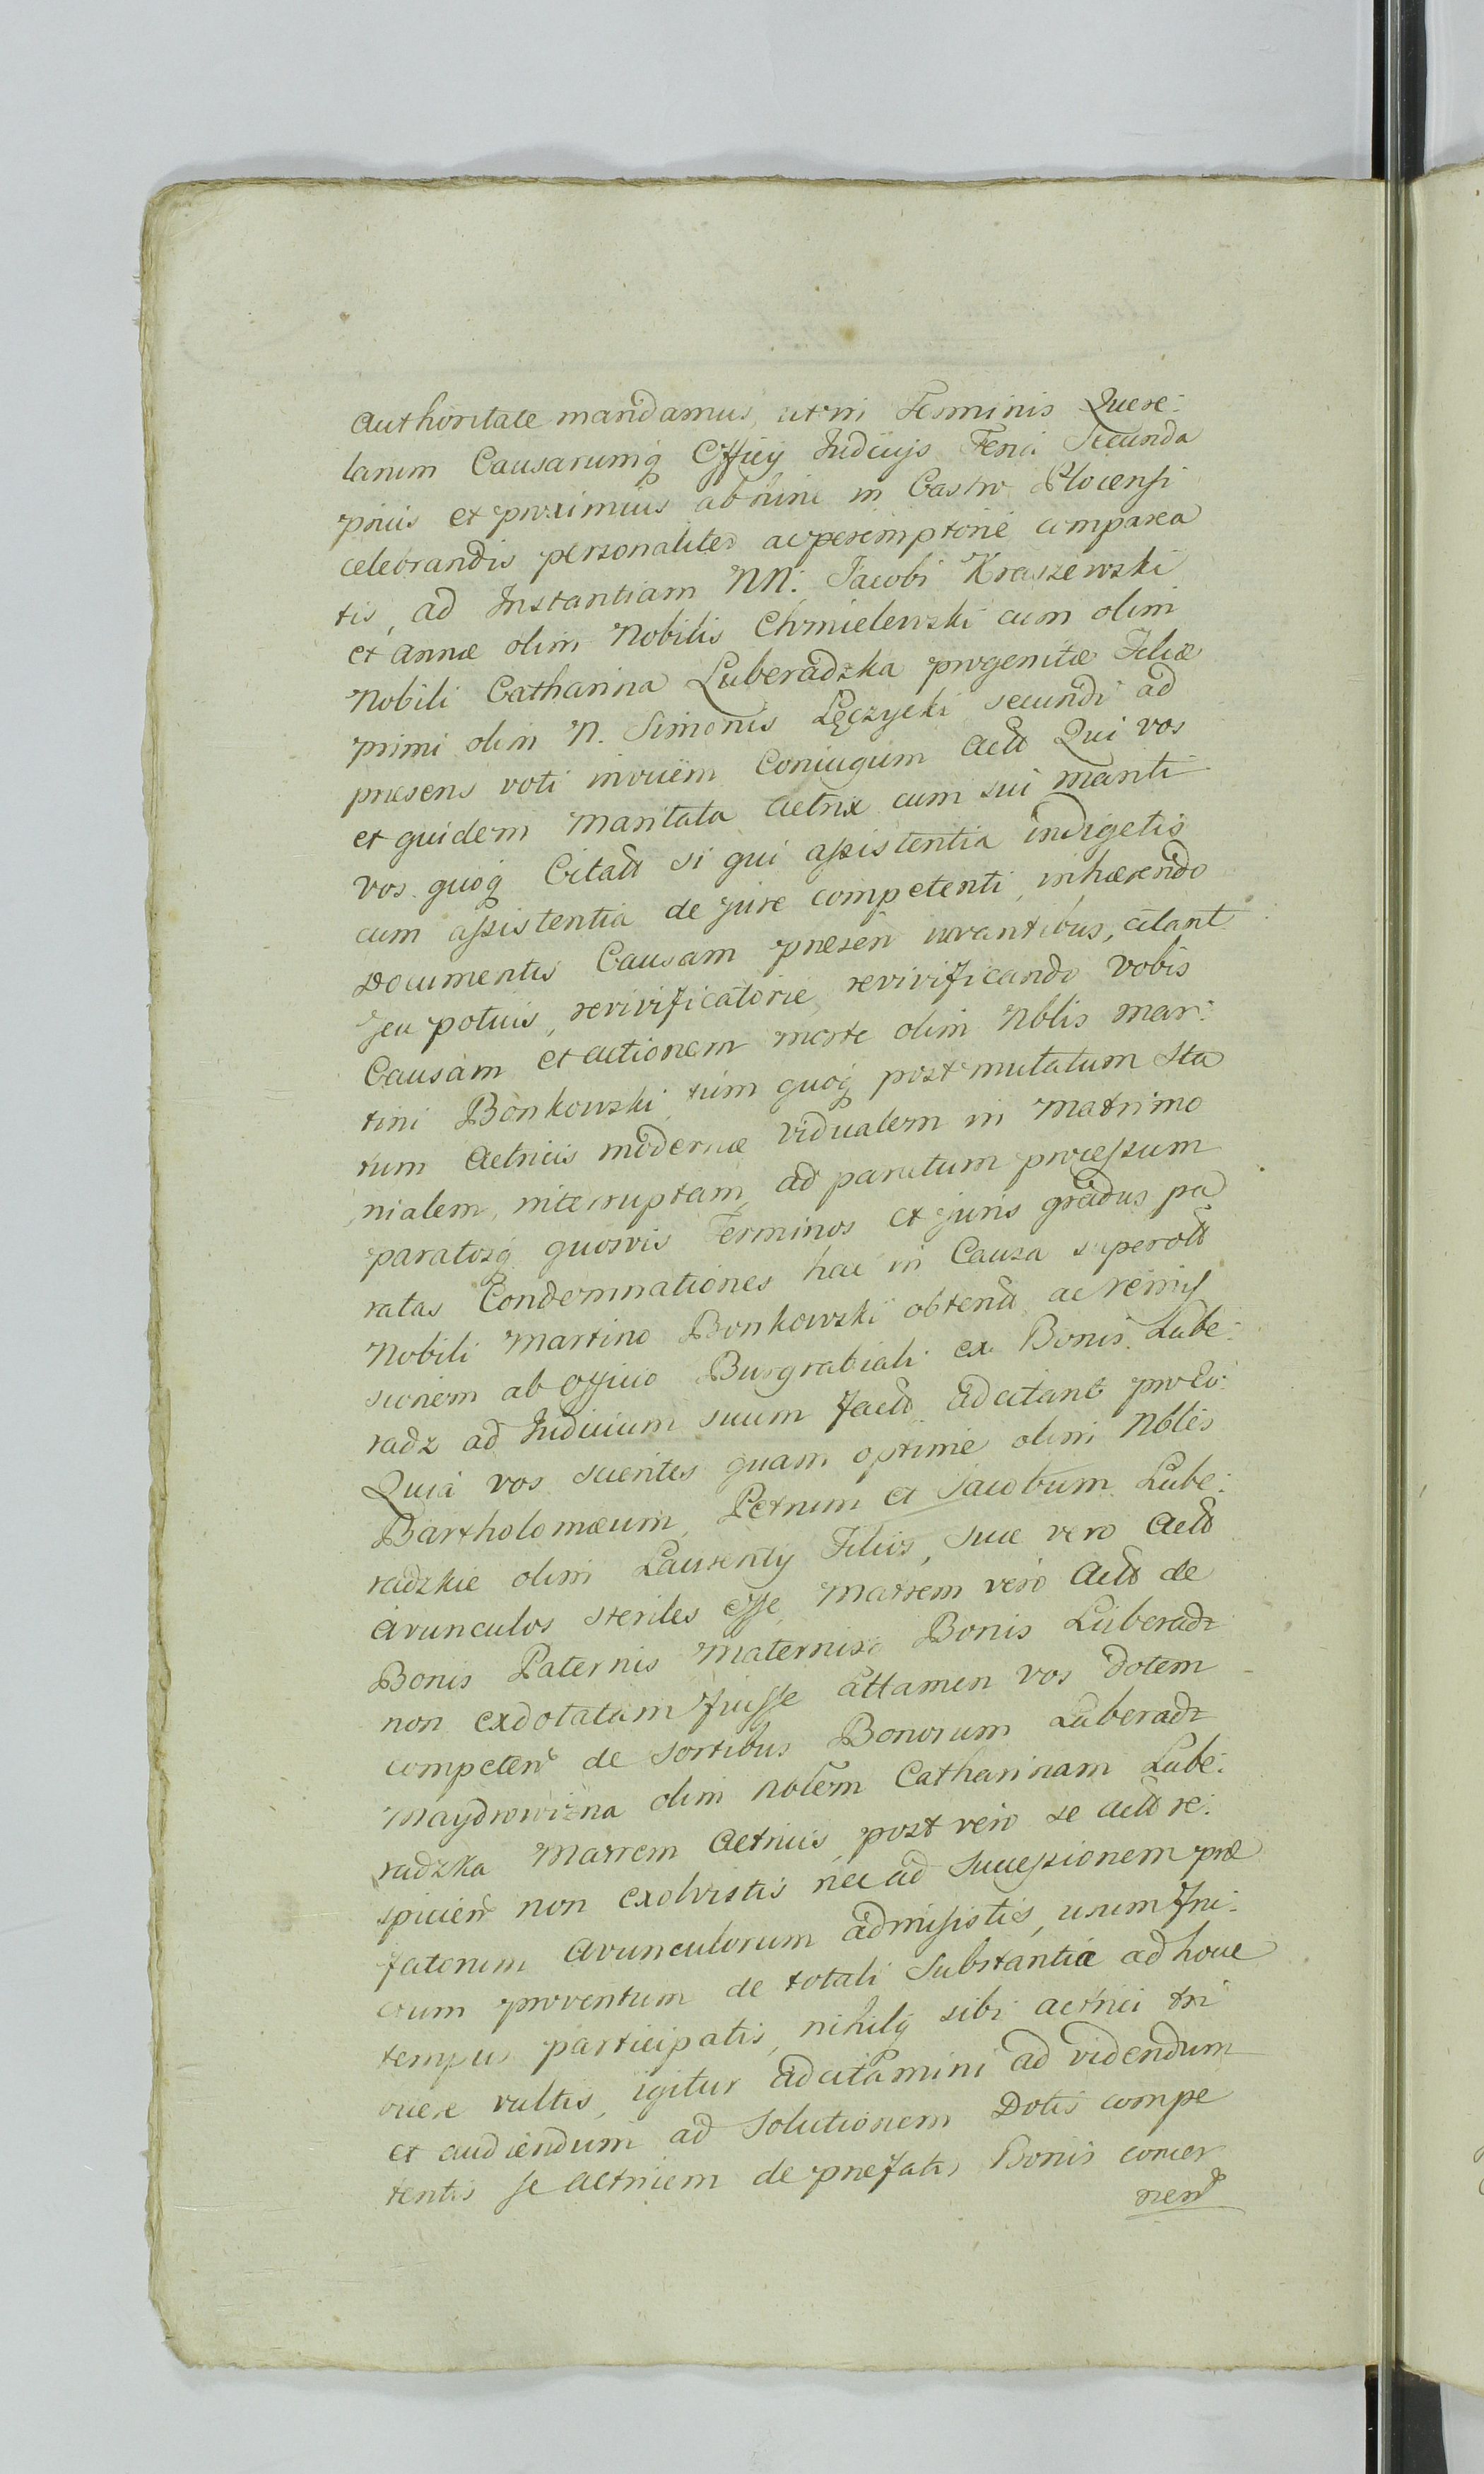 Authoritate mandamus, ut in Terminis Quere:
larum Causarumq Officij Judicijs Feria Secunda
prius et proximius abhinc in Castro Plocensi
celebrandis personaliter ac peremptorie comparea
tis, ad Instantiam NN: Jacobi Kraszewski
et Annæ olim Nobilis Chmielewski cum olim
Nobili Catharina Luberadzka progenitæ Filiæ
primi olim N. Simonis Lęczycki secundi ad
præsens voti invicem Coniugum Actt Qui vos
et quidem Maritata Actrix cum sui Mariti
vos quoq Citatt si qui assistentia indigetis
cum assistentia de jure competenti, inhærendo
Documentis Causam præsen iuvantibus, citant
seu potius, revivificatorie, revivificando vobis
Causam et actionem morte olim Nblis Mar:
tini Bonkowski, tum quoq post mutatum Sta
tum Actricis modernæ vidualem in Matrimo
nialem, interruptam, ad paratum processum
paratosq quosvis Terminos et juris gradus pa
ratas Condemnationes hac in Causa super ott
Nobili Martino Bonkowski obtent ac remis
sionem ab Officio Burgrabiali ex Bonis Lube:
radz ad Judicium suum fact adcitant pro eo:
Quia vos scientes quam optime olim Nbles
Bartholomæum, Petrum et Jacobum Lube:
radzkie olim Laurentij Filios, suæ vero Actt
Avunculos steriles esse, Matrem vero Actt de
Bonis Paternis Maternisq Bonis Luberadz
non exdotatam fuisse attamen vos dotem
competen de Sortibus Bonorum Luberadz
Maydrowizna olim Nblem Catharinam Lube:
radzka Matrem Actricis, post vero se Actt re:
spicien non exolvistis nec ad Successionem præ
fatorum Avunculorum admisistis, usum fru:
ctum proventum de totali Substantia ad hocce
tempus participatis, nihilq sibi actrici tri
buere vultis, igitur adcitamini ad videndum
et audiendum ad Solutionem Dotis compe
tentis se Actricem de præfatis Bonis concer
nen